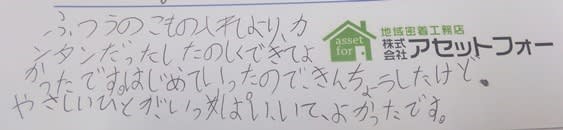 ふつうのこもの入れより、カ
ンタンだったしたのしくできてよ
かったです。はじめていったので、きんちょうしたけど、
やさしいひとがいっぱいいて、よかったです。
asset
for
地域密着工務店
株式会社アセットフォー